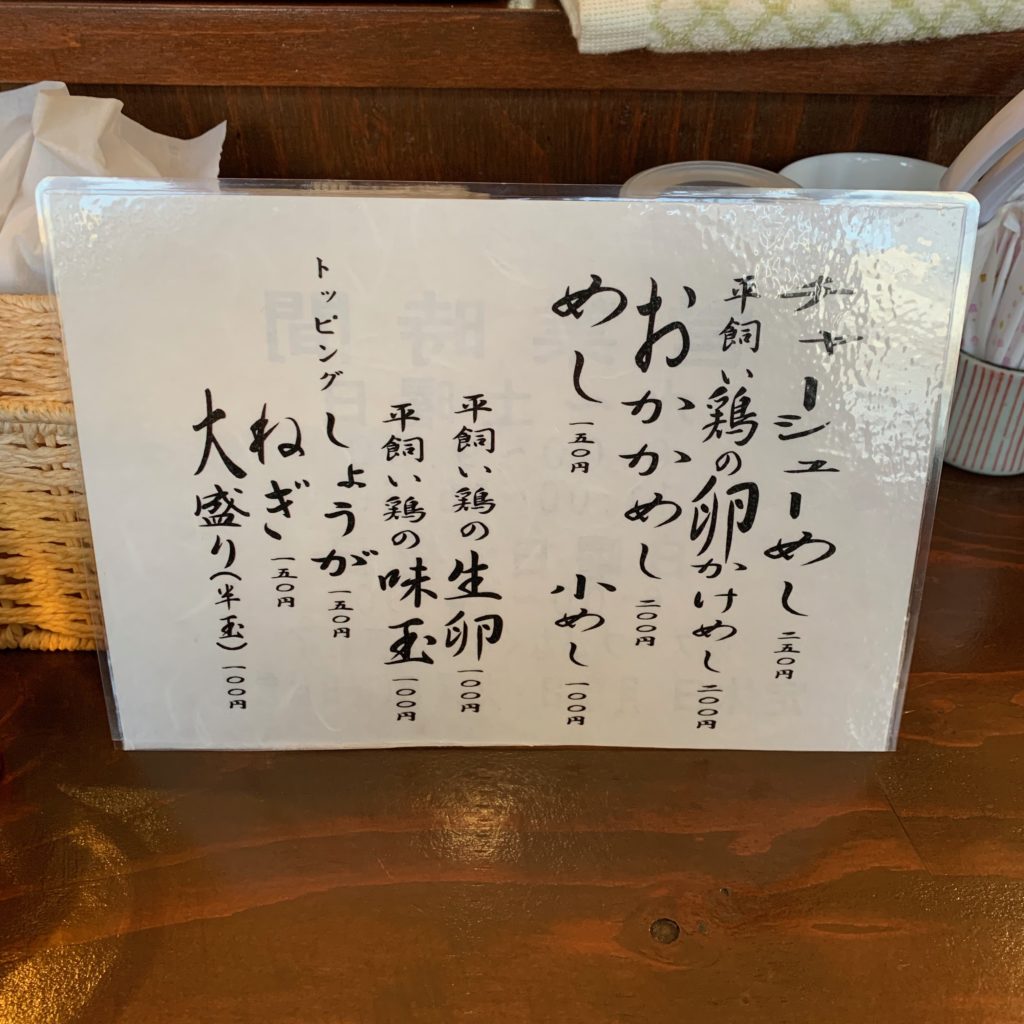 チャーシューめし 二五〇円
平飼い鶏の卵かけめし 二〇〇円
おかかめし 二〇〇円
めし 一五〇円 小めし 一〇〇円
平飼い鶏の生卵 一〇〇円
平飼い鶏の味玉 一〇〇円
トッピング しょうが 一五〇円
ねぎ 一五〇円
大盛り(半玉) 一〇〇円